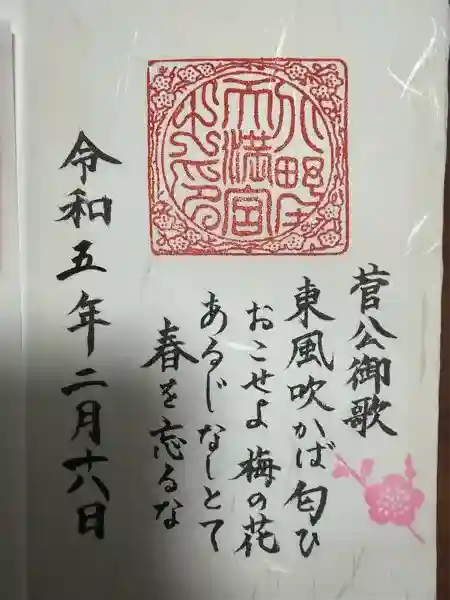 野坐
天満宮
之印
菅公御歌
東風吹かば匂ひ
おこせよ梅の花
あるじなしとて
春を忘るな
令和五年二月十八日